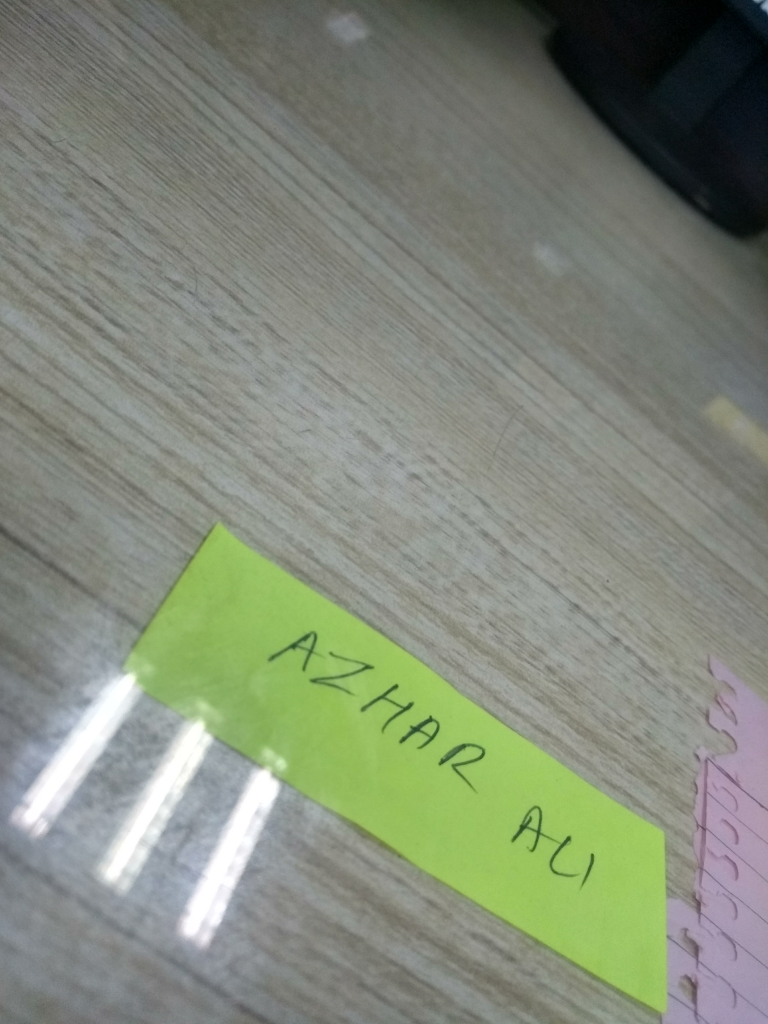 AZHAR ALI